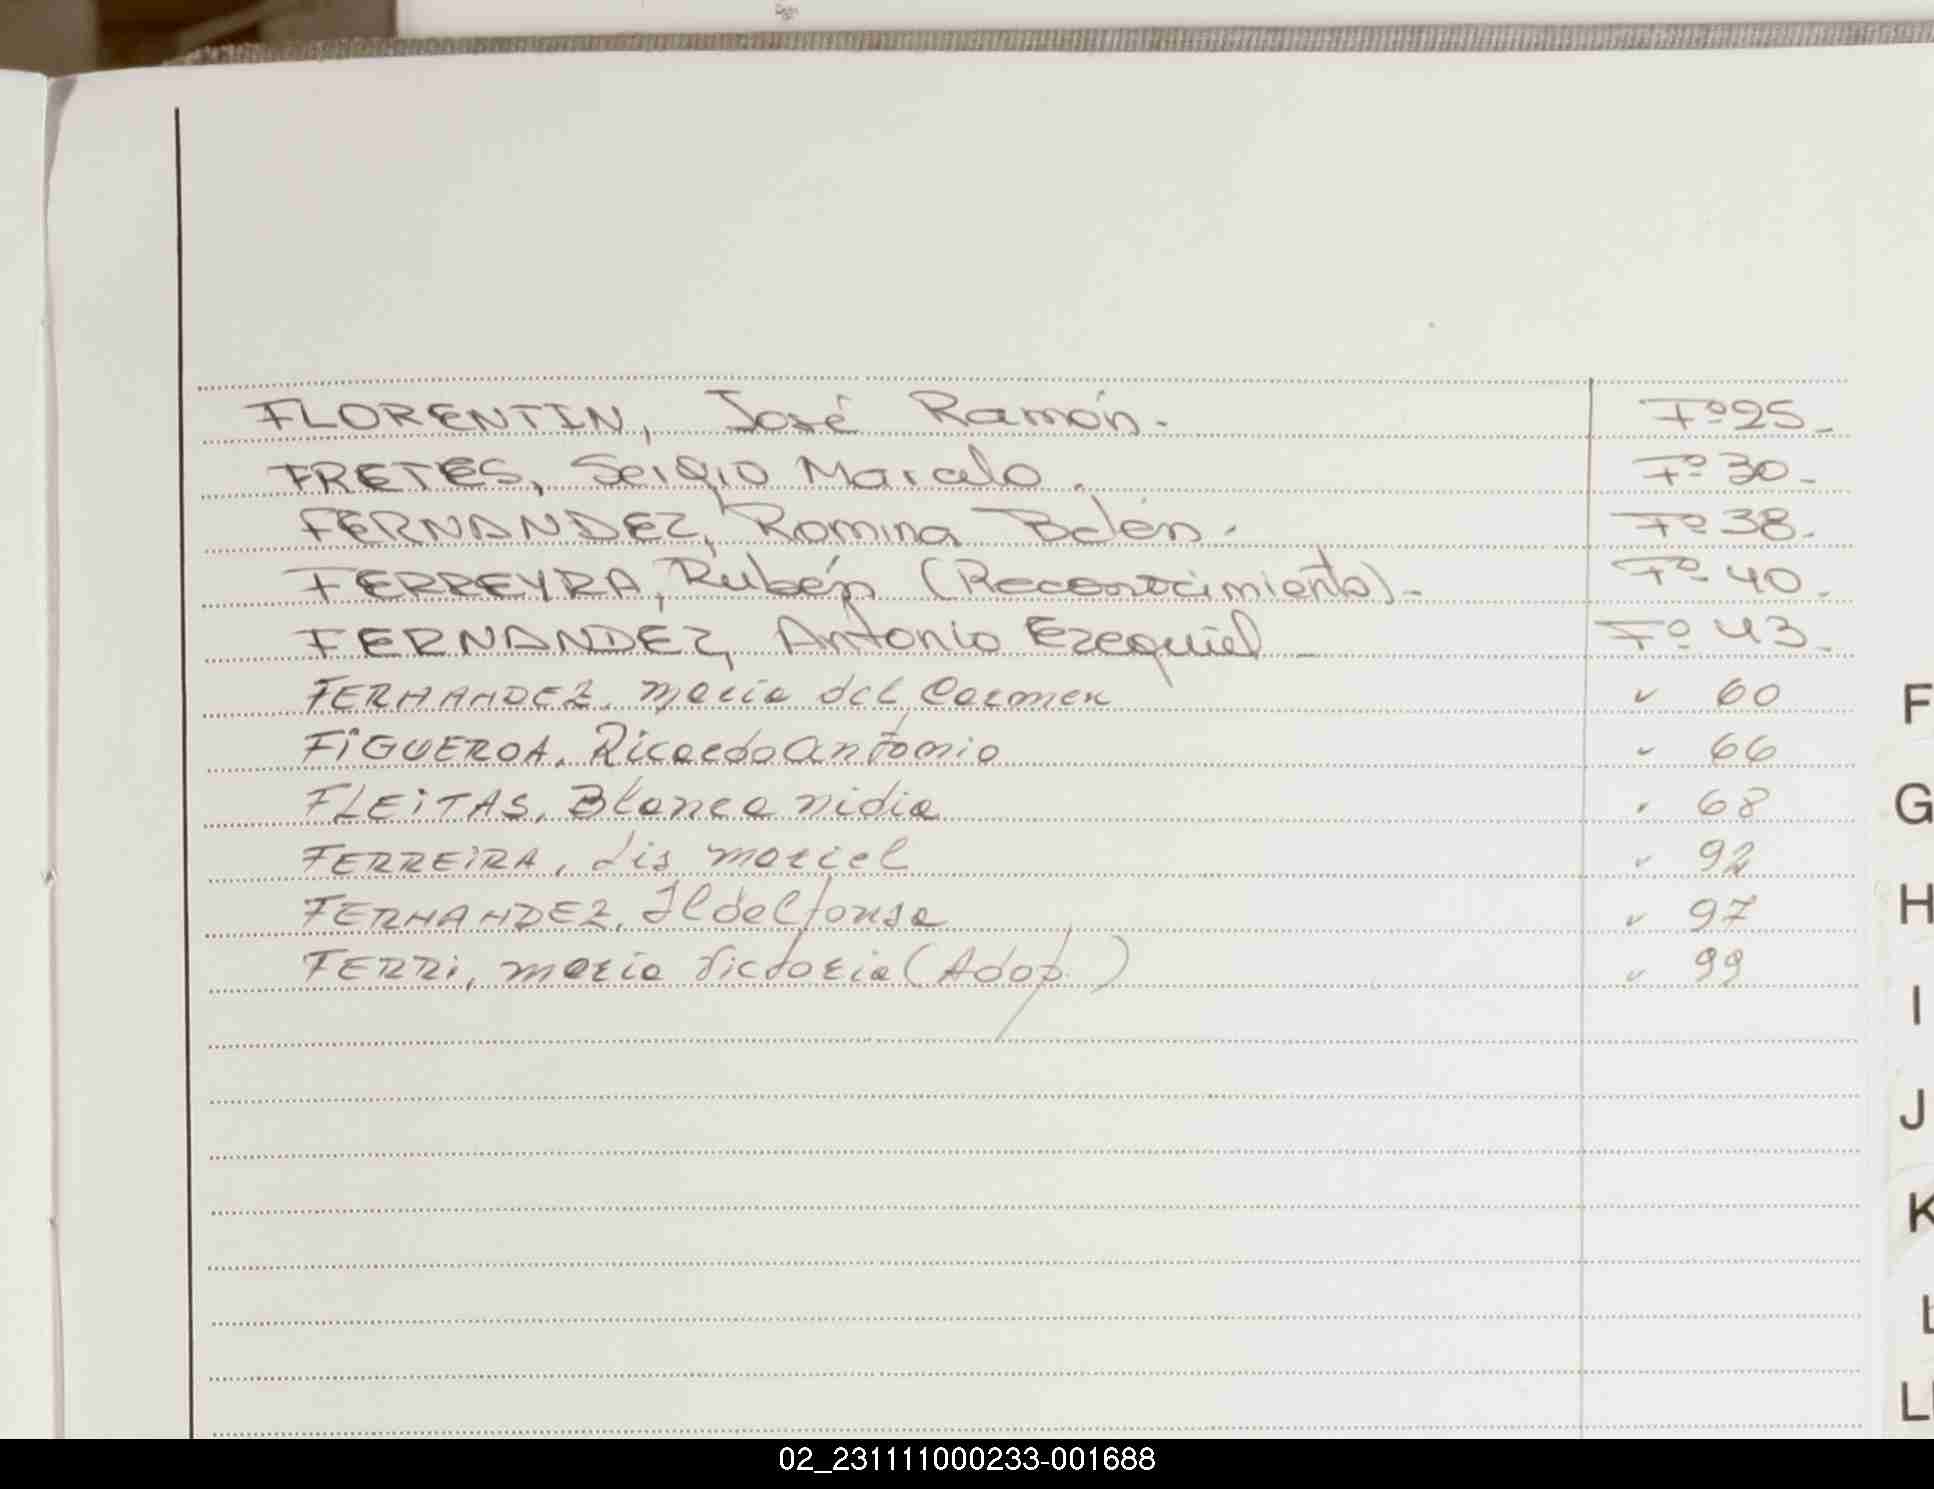 FLORENTIN, José Ramón. Fº 25_
FRETES, Sergio Marcelo. Fº 30_
FERNANDEZ, Romina Belén. Fº 38.
FERREYRA, Rubén (Reconocimiento)._ Fº 40.
FERNANDEZ, Antonio Ezequiel_ Fº 43_
FERNANDEZ, maria del Carmen " 60
FiGUEROA, Ricardo antonio " 66
FLEiTAS, Blanca nidia " 68
FERREiRA, Lis mariel " 92
FERNANDEZ, Ildelfonsa " 97
FERRi, maria Victoria (Adop.) " 99
F
G
H
I
J
K
L
02_231111000233-001688